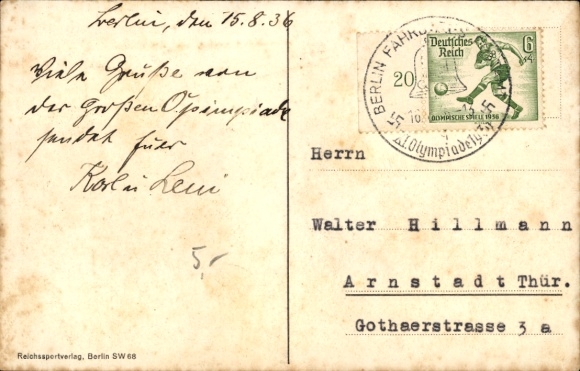 Berlin, den 15.8.36
Viele Grüße von
der großen Olympiade
sendet Euer
Karl u Leni
5,-
Reichssportverlag, Berlin SW 68
BERLIN FAHRBARES
XI. Olympiade 1936
Deutsches
Reich
6
+4
20
OLYMPISCHE SPIELE 1936
Herrn
Walter Hillmann
Arnstadt Thür.
Gothaerstrasse 3 a